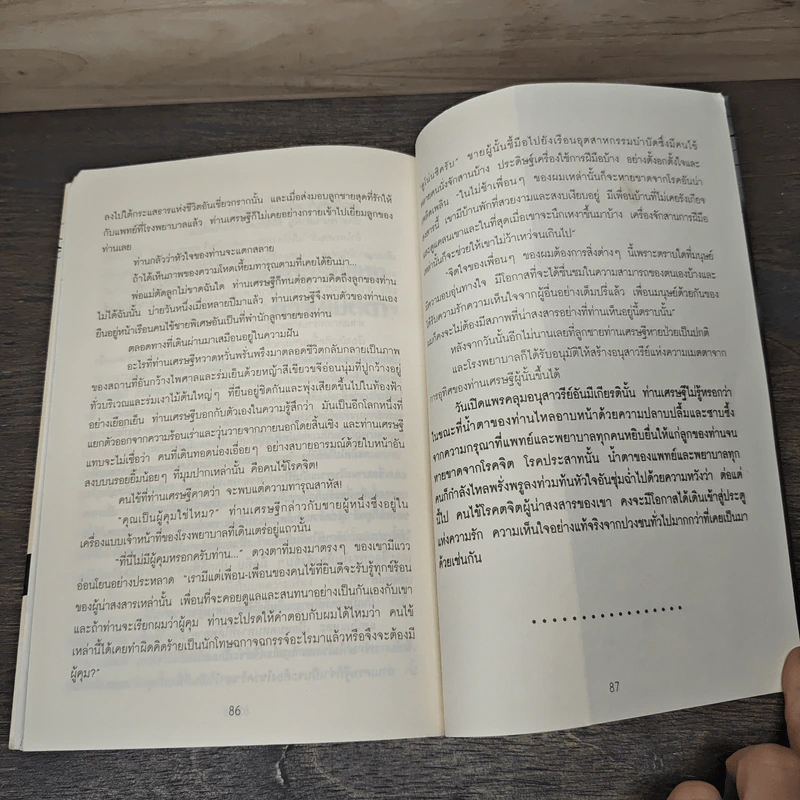 ลงไปใต้กระแสธารแห่งชีวิตอันเชี่ยวกรากนั้น และเมื่อส่งมอบลูกชายสุดที่รักให้
กับแพทย์ที่โรงพยาบาลแล้ว ท่านเศรษฐีก็ไม่เคยอย่างกรายเข้าไปเยี่ยมลูกของ
ท่านเลย
ท่านกลัวว่าหัวใจของท่านจะแตกสลาย
ถ้าได้เห็นภาพของความโหดเหี้ยมทารุณตามที่เคยได้ยินมา...
พ่อแม่ตัดลูกไม่ขาดฉันใด ท่านเศรษฐีก็ทนต่อความคิดถึงลูกของท่าน
ไม่ได้ฉันนั้น บ่ายวันหนึ่งเมื่อหลายปีมาแล้ว ท่านเศรษฐีจึงพบตัวของท่านเอง
ยืนอยู่หน้าเรือนคนไข้ชายพิเศษอันเป็นที่พำนักลูกชายของท่าน
ตลอดทางที่เดินผ่านมาเสมือนอยู่ในความฝัน
อะไรที่ท่านเศรษฐีหวาดหวั่นพรั่นพรึงมาตลอดชีวิตกลับกลายเป็นภาพ
ของสถานที่อันกว้างไพศาลและร่มเย็นด้วยหญ้าสีเขียวขจีอ่อนนุ่มที่ปูกว้างอยู่
ทั่วบริเวณและร่มเงาไม้ต้นใหญ่ๆ ที่ยืนอยู่ชิดกันและพุ่งเสียดขึ้นไปในท้องฟ้า
อย่างเยือกเย็น ท่านเศรษฐีบอกกับตัวเองในความรู้สึกว่า มันเป็นอีกโลกหนึ่งที่
แยกตัวออกจากความร้อนเร่าและวุ่นวายจากภายนอกโดยสิ้นเชิง และท่านเศรษฐี
แทบจะไม่เชื่อว่า คนที่เดินทอดน่องเอื่อยๆ อย่างสบายอารมณ์ด้วยใบหน้าอัน
สงบบนรอยยิ้มน้อยๆ ที่มุมปากเหล่านั้น คือคนไข้โรคจิต!
คนไข้ที่ท่านเศรษฐีคาดว่า จะพบแต่ความทารุณสาหัส!
"คุณเป็นผู้คุมใช่ไหม?" ท่านเศรษฐีกล่าวกับชายผู้หนึ่งซึ่งอยู่ใน
เครื่องแบบเจ้าหน้าที่ของโรงพยาบาลที่เดินเตร่อยู่แถวนั้น
"ที่นี่ไม่มีผู้คุมหรอกครับท่าน..." ดวงตาที่มองมาตรงๆ ของเขามีแวว
อ่อนโยนอย่างประหลาด "เรามีแต่เพื่อน-เพื่อนของคนไข้ที่ยินดีจะรับรู้ทุกข์ร้อน
ของผู้น่าสงสารเหล่านั้น เพื่อนที่จะคอยดูแลและสนทนาอย่างเป็นกันเองกับเขา
และถ้าท่านจะเรียกผมว่าผู้คุม ท่านจะโปรดให้คำตอบกับผมได้ไหมว่า คนไข้
เหล่านี้ได้เคยทำผิดคิดร้ายเป็นนักโทษฉกาจฉกรรจ์อะไรมาแล้วหรือจึงจะต้องมี
ผู้คุม?"
86
"ดูโน่นซิครับ" ชายผู้นั้นชี้มือไปยังเรือนอุตสาหกรรมบำบัดซึ่งมีคนไข้
หลายคนนั่งจักสานบ้าง ประดิษฐ์เครื่องใช้การฝีมือบ้าง อย่างตั้งอกตั้งใจและ
เพลิดเพลิน "ในไม่ช้าเพื่อนๆ ของผมเหล่านั้นก็จะหายขาดจากโรคอันน่า
สงสารนี้ เขามีบ้านพักที่สวยงามและสงบเงียบอยู่ มีเพื่อนบ้านที่ไม่เคยรังเกียจ
และดูแคลนเขาและในที่สุดเมื่อเขาจะนึกเหงาขึ้นมาบ้าง เครื่องจักสานการฝีมือ
เหล่านั้นก็จะช่วยให้เขาไม่ว้าเหว่จนเกินไป"
"จิตใจของเพื่อนๆ ของผมต้องการสิ่งต่างๆ นี้เพราะตราบใดที่มนุษย์
มีความอบอุ่นทางใจ มีโอกาสที่จะได้ชื่นชมในความสามารถของตนเองบ้างและ
ได้รับความรักความเห็นใจจากผู้อื่นอย่างเต็มปรี่แล้ว เพื่อนมนุษย์ด้วยกันของ
ผมก็คงจะไม่ต้องมีสภาพที่น่าสงสารอย่างที่ท่านเห็นอยู่นี้ตราบนั้น"
หลังจากวันนั้นอีกไม่นานเลยที่ลูกชายท่านเศรษฐีหายป่วยเป็นปกติ
และโรงพยาบาลก็ได้รับอนุมัติให้สร้างอนุสาวรีย์แห่งความเมตตาจาก
การอุทิศของท่านเศรษฐีผู้นั้นขึ้นได้
วันเปิดแพรคลุมอนุสาวรีย์อันมีเกียรตินั้น ท่านเศรษฐีไม่รู้หรอกว่า
ในขณะที่น้ำตาของท่านไหลอาบหน้าด้วยความปลาบปลื้มและซาบซึ้ง
จากความกรุณาที่แพทย์และพยาบาลทุกคนหยิบยื่นให้แก่ลูกของท่านจน
หายขาดจากโรคจิต โรคประสาทนั้น น้ำตาของแพทย์และพยาบาลทุก
คนก็กำลังไหลพรั่งพรูลงท่วมท้นหัวใจอันชุ่มฉ่ำไปด้วยความหวังว่า ต่อแต่
นี้ไป คนไข้โรคจิตผู้น่าสงสารของเขา คงจะมีโอกาสได้เดินเข้าสู่ประตู
แห่งความรัก ความเห็นใจอย่างแท้จริงจากปวงชนทั่วไปมากกว่าที่เคยเป็นมา
ด้วยเช่นกัน
87